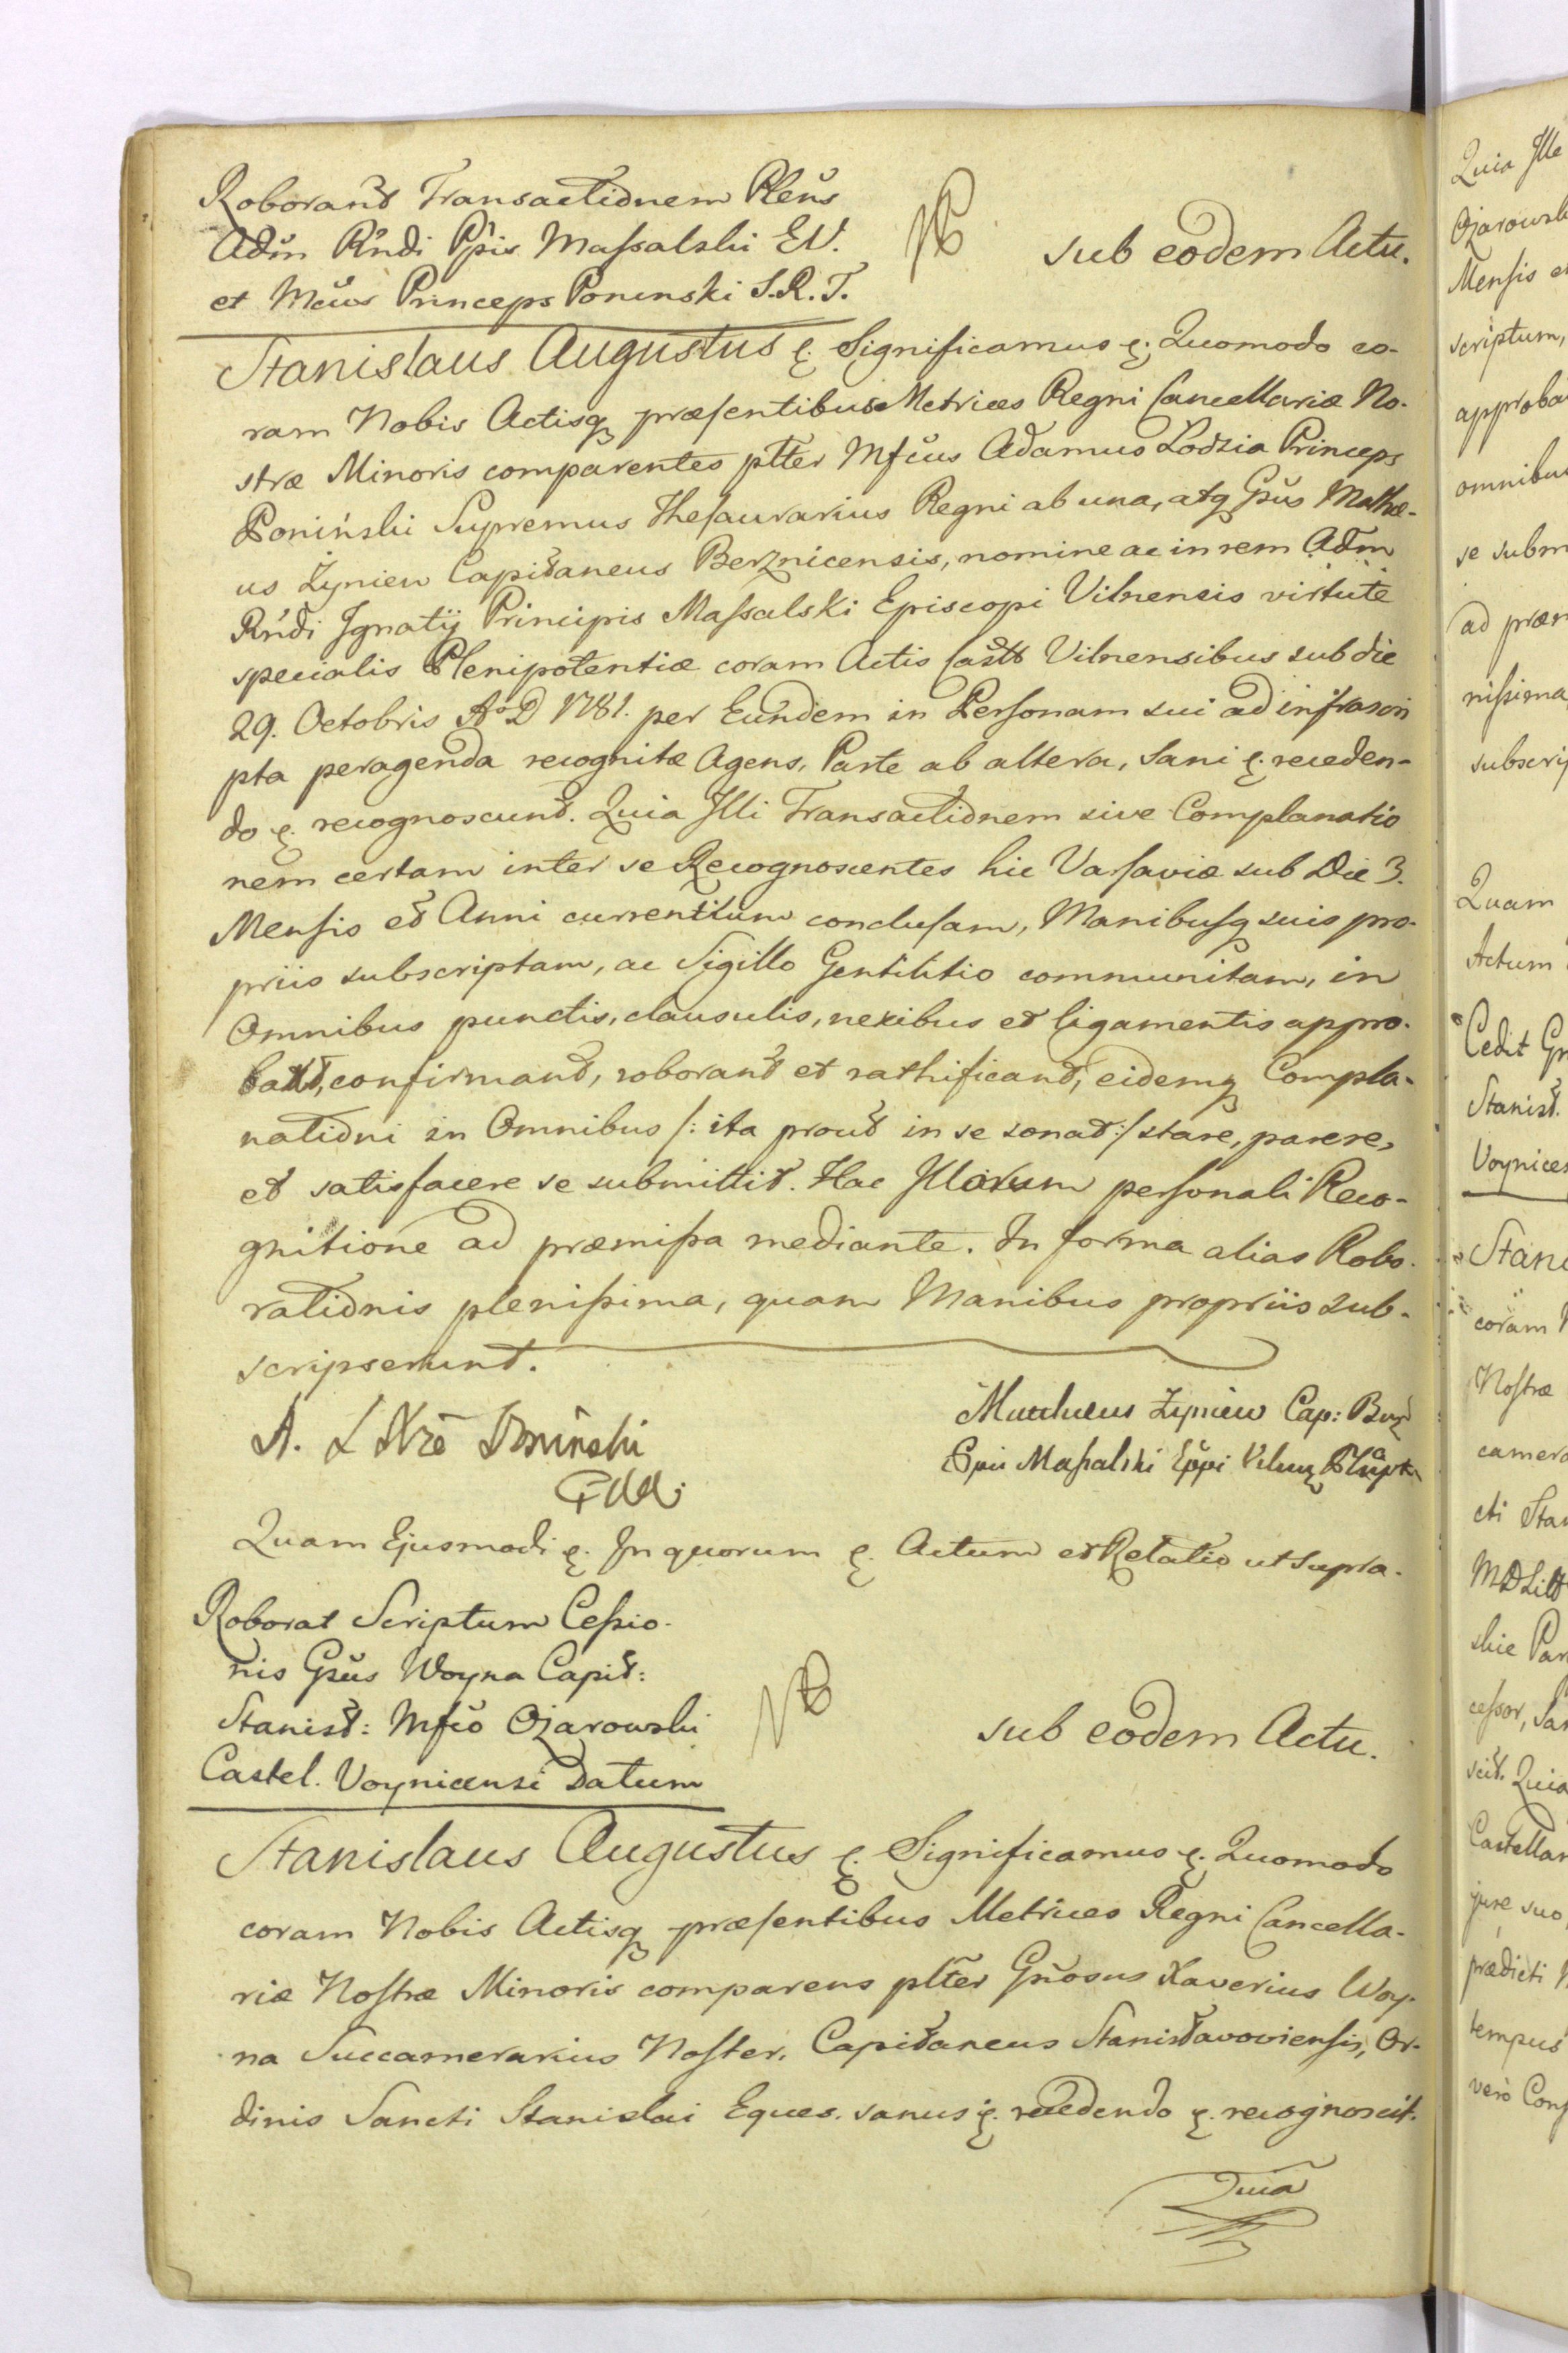 Roborant Transactionem Plens
Adm Rndi Ppis Massalski E.V.
et Mcus Princeps Poninski S.R.T.
NB
sub eodem Actu.
Stanislaus Augustus &. Significamus &. Quomodo co-
ram Nobis Actisq præsentibus Metrices Regni Cancellariæ No-
stræ Minoris comparentes pltter Mfcus Adamus Lodzia Princeps
Poniński Supremus Thesaurarius Regni ab una, atq Gsus Mathæ-
us Żyniew Capitaneus Berznicensis, nomine ac in rem Adm
Rndi Ignatij Principis Massalski Episcopi Vilnensis virtute
specialis Plenipotentiæ coram Actis Castt Vilnensibus sub die
29. Octobris Ao D 1781. per Eundem in Personam sui ad infrascri
pta peragenda recognitæ Agens, Parte ab altera, Sani &. receden-
do &. recognoscunt. Quia Illi Transactionem sive Complanatio
nem certam inter se Recognoscentes hic Varsaviæ sub Die 3.
Mensis et Anni currentium conclusam, Manibusq suis pro-
priis subscriptam, ac Sigillo Gentilitio communitam, in
Omnibus punctis, clausulis, nexibus et ligamentis appro-
bant, confirmant, roborant et rathificant, eidemq Compla-
nationi in Omnibus /: ita prout in se sonat :/ stare, parere,
et satisfacere se submittit. Hac Illorum personali Reco-
gnitione ad præmissa mediante. In forma alias Robo-
rationis plenissima, quam Manibus propriis sub-
scripserunt.
A. Ł Xże Poniński
Matheus Żyniew Cap: Brz
Massalski Eppi
Quam Ejusmodi &. In quorum &. Actum et Relatio ut supra.
Roborat Scriptum Cessio-
nis Gsus Woyna Capit:
Stanist: Mfco Ożarowski
Castel. Voynicensi Datum
NB
sub eodem Actu.
Stanislaus Augustus &. Significamus &. Quomodo
coram Nobis Actisq præsentibus Metrices Regni Cancella-
riæ Nostræ Minoris comparens pltter Gnosus Xaverius Woy-
na Succamerarius Noster, Capitaneus Stanisławoviensis, Or-
dinis Sancti Stanislai Eques. sanus &. recedendo &. recognoscit.
Quia
Quia Ille
Ożarowsk
Mensis e
scriptum,
approba
omnibu
se subm
ad præm
nissima
subscrip
Quam
Actum
Cedit G
Stanist.
Voynice
Stani
coram N
Nostræ
camera
cti Sta
MD Litt
skie Par
cessor, Sa
scit. Quia
Castellan
jure suo
prædicti
tempus
verò Cons